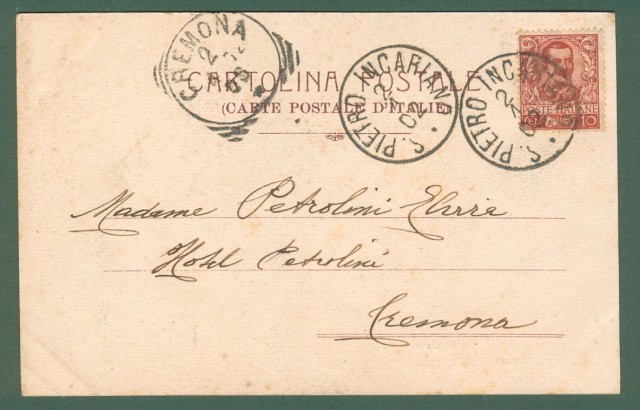 CREMONA
2
CARTOLINA POSTALE
(CARTE POSTALE D'ITALIE)
S. PIETRO INCARIANO
2
02
S. PIETRO INCARIANO
2
POSTE ITALIANE
10
Madame Petrolini
Hotel Petrolini
Cremona